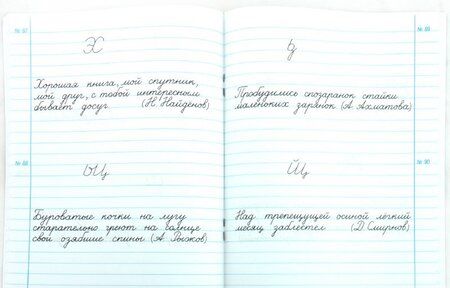 № 87
Х
Хорошая книга, мой спутник,
мой друг, с тобой интересным
бывает досуг. (Н Найдёнов)
№ 88
Буроватые кочки на лугу
старательно греют на солнце
свои озябшие спины (А Рыжов)
№ 89
Пробудились спозаранок стайки
маленьких зарянок (А Ахматова)
№ 90
Над трепещущей осиной лёгкий
месяц заблестел (Д Смирнов)